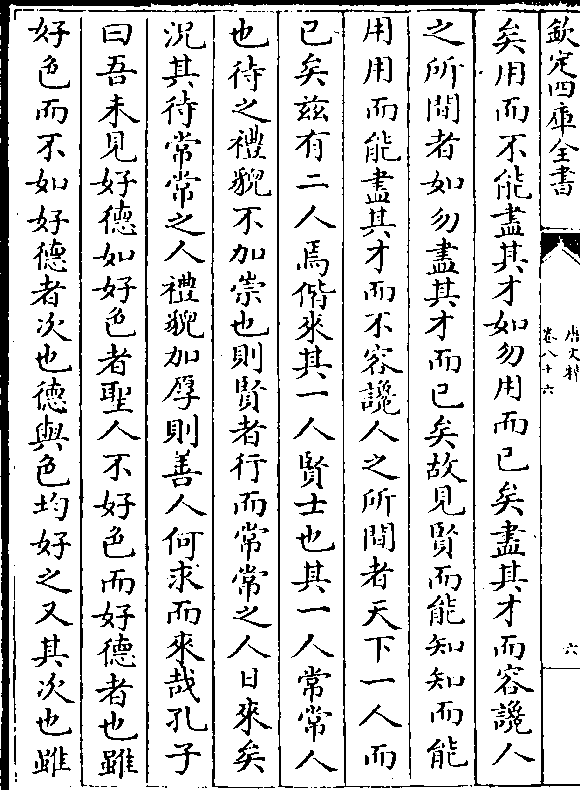 欽定四庫全書
唐文粹
卷八十六
六
矣用而不能盡其才如勿用而已矣盡其才而容讒人
之所間者如勿盡其才而已矣故見賢而能知知而能
用用而能盡其才而不容讒人之所間者天下一人而
已矣兹有二人焉偕來其一人賢士也其一人常常人
也待之禮貌不加崇也則賢者行而常常之人日來矣
況其待常常之人禮貌加厚則善人何求而來哉孔子
曰吾未見好德如好色者聖人不好色而好德者也雖
好色而不如好德者次也德與色均好之又其次也雖